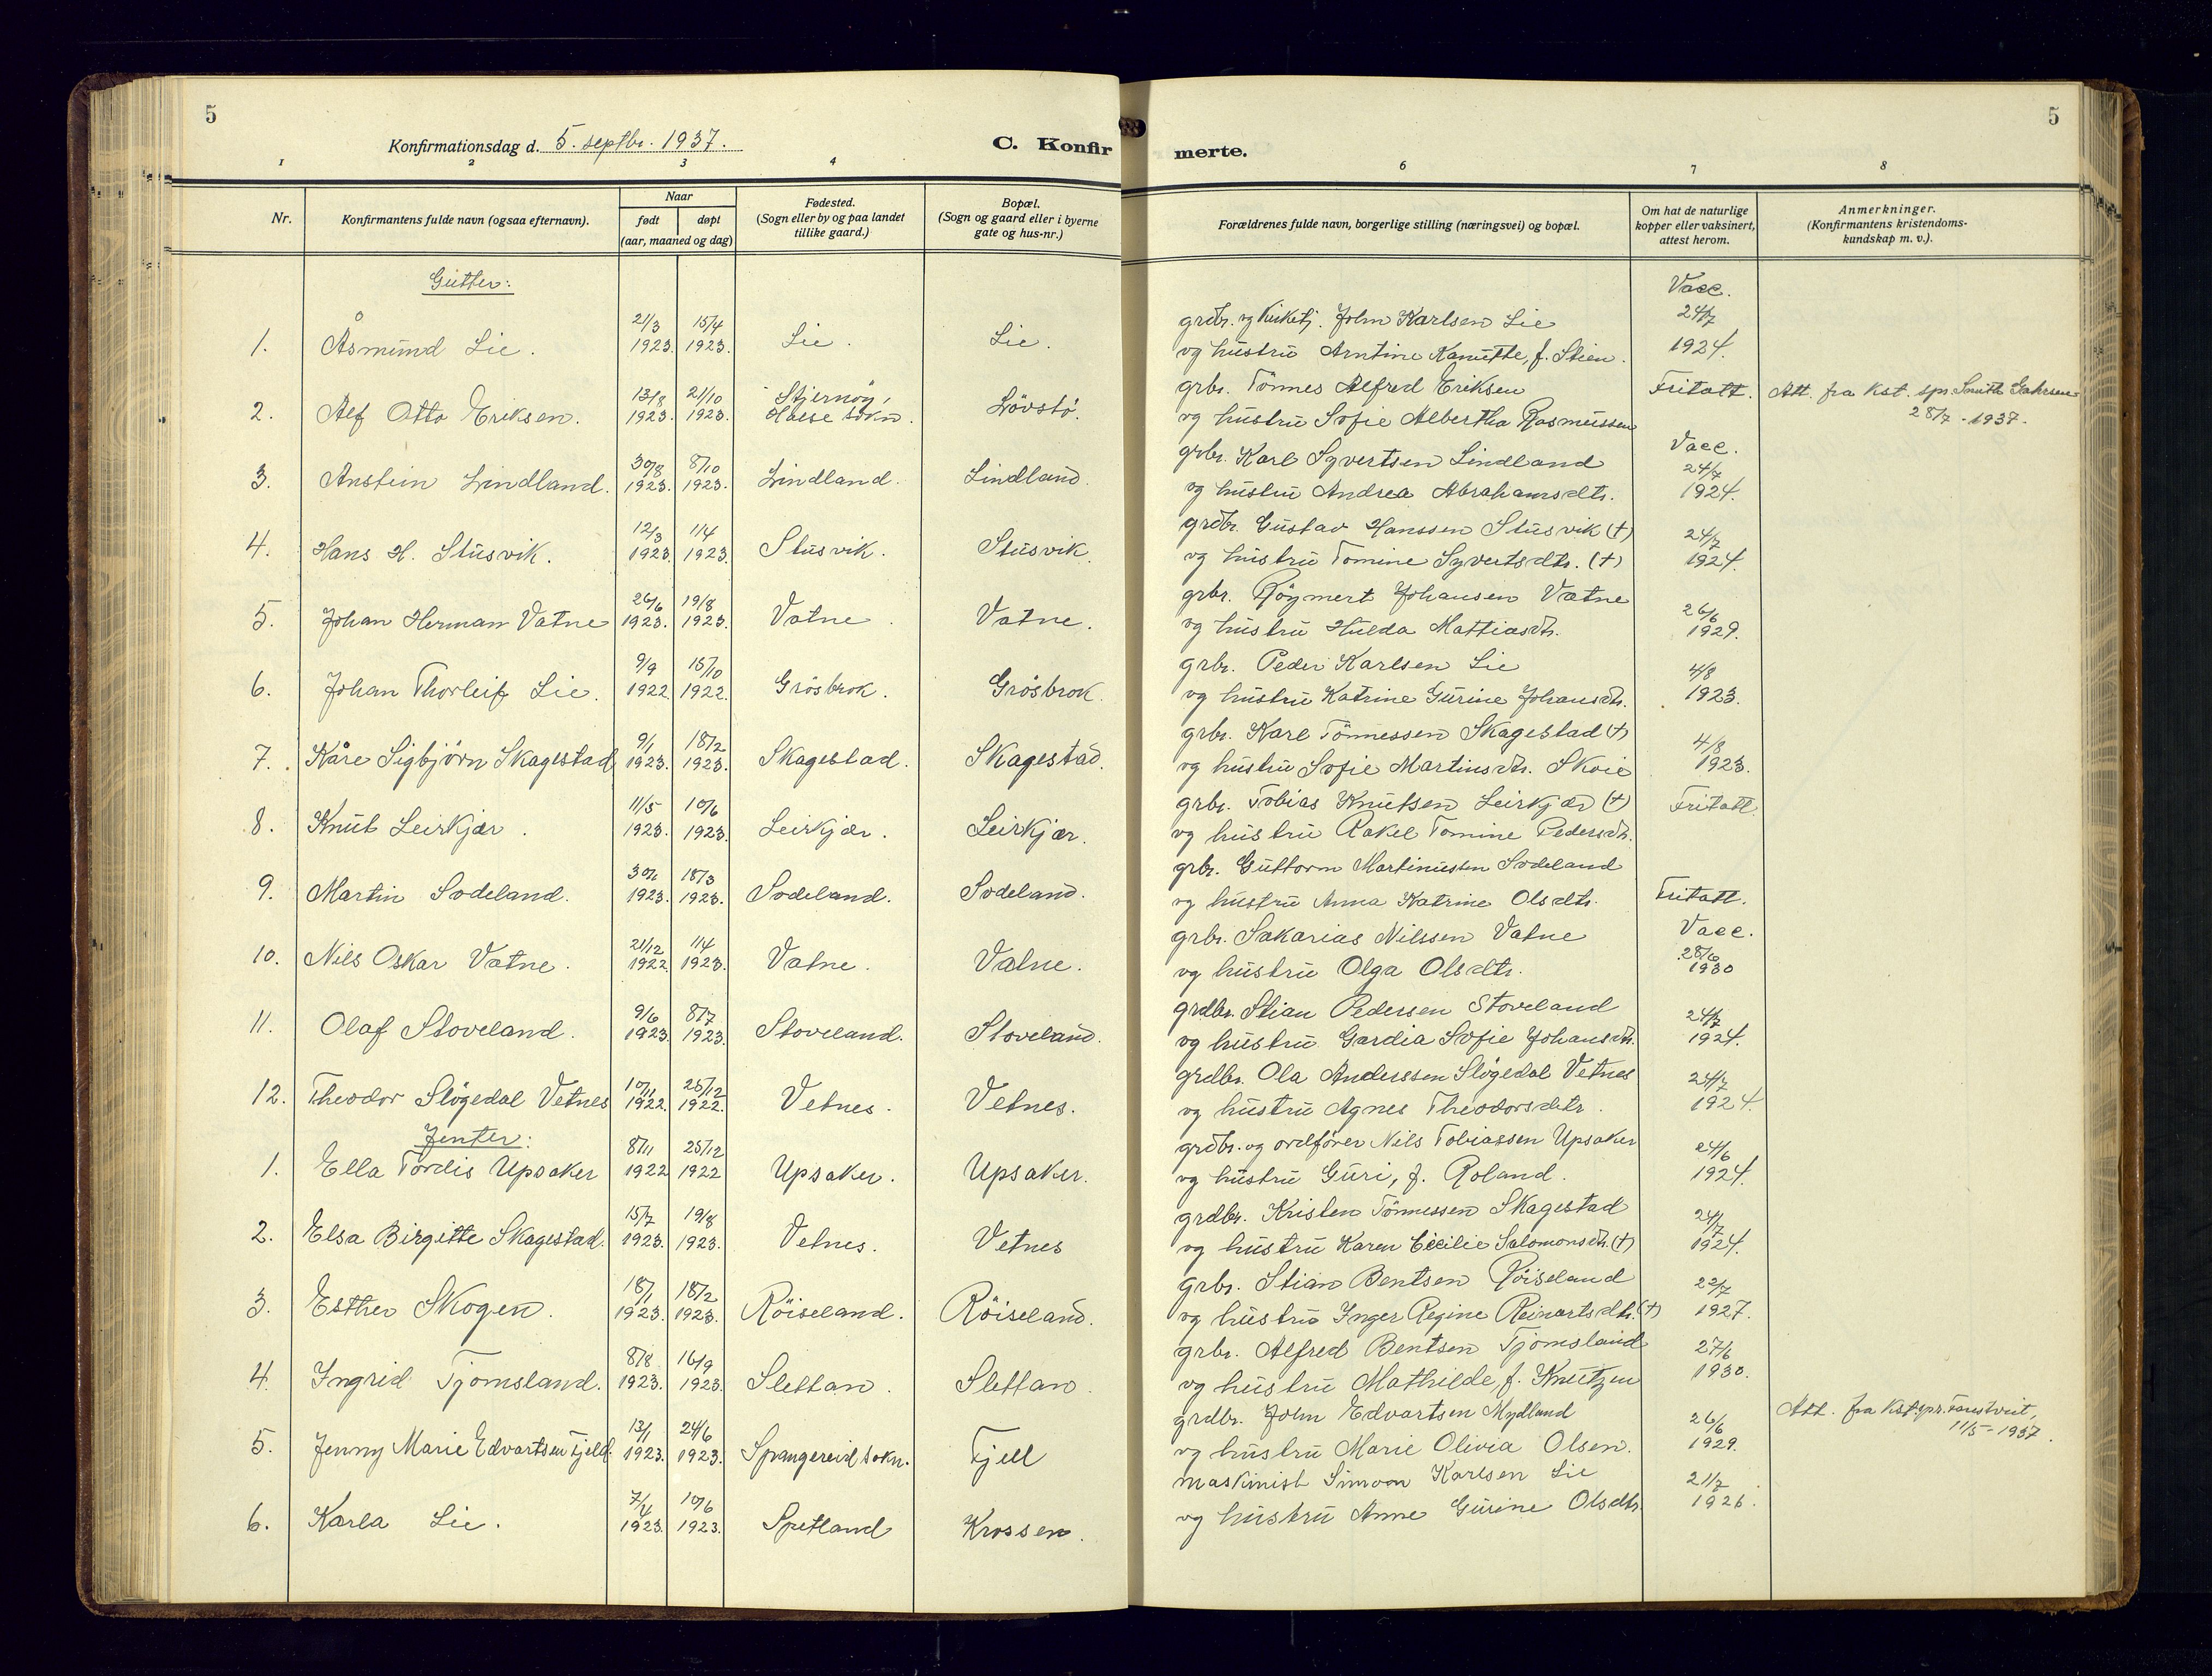 5
Konfirmationsdag d. 5. septbr. 1937.
C. Konfir
merte.
5
1 2 3 4 6 7 8
Nr.
Konfirmantens fulde navn (ogsaa efternavn).
Naar
født
døpt
(aar, maaned og dag)
Fødested.
(Sogn eller by og paa landet
tillike gaard.)
Bopæl.
(Sogn og gaard eller i byerne
gate og hus-nr.)
Forældrenes fulde navn, borgerlige stilling (næringsvei) og bopæl.
Om hat de naturlige
kopper eller vaksinert,
attest herom.
Anmerkninger.
(Konfirmantens kristendoms-
kundskap m. v.).
Gutter:
1. Åsmund Lie. 21/3 1923. 15/4 1923. Lie. Lie.
grdbr. og kirketj. John Karlsen Lie
og hustru Arntine Kanutte, f. Stien.
Vacc. 24/7 1924.
2. Alf Otto Eriksen. 13/8 1923. 21/10 1923. Stjernøy, Halse sokn. Lövstö.
grbr. Tönnes Alfred Eriksen
og hustru Sofie Albertha Rasmussen
Fritatt.
Att. fra Kst. spr. Smith
28/7 - 1937.
3. Anstein Lindland. 30/8 1923. 8/10 1923. Lindland. Lindland.
grbr. Karl Syvertsen Lindland
og hustru Andrea Abrahamsdtr.
Vacc. 24/7 1924.
4. Hans H. Stusvik. 12/3 1923 1/4 1923. Stusvik. Stusvik.
grdbr. Gustav Hanssen Stusvik (†)
og hustru Tomine Syvertsdtr. (†)
24/7 1924.
5. Johan Herman Vatne 26/6 1923. 19/8 1923. Vatne. Vatne.
grbr. Röymert Johansen Vatne
og hustru Hulda Mattiasdtr.
26/6 1929.
6. Johan Thorleif Lie. 9/9 1922. 15/10 1922. Grösbrok. Grösbrok.
grbr. Peder Karlsen Lie
og hustru Katrine Gurine Johansdtr.
4/8 1923.
7. Kåre Sigbjörn Skagestad 9/1 1923. 18/2 1923. Skagestad. Skagestad.
grbr. Karl Tönnessen Skagestad (†)
og hustru Sofie Martinsdtr. Skoie
4/8 1923.
8. Knut Leirkjær. 11/5 1923. 10/6 1923. Leirkjær. Leirkjær.
grbr. Tobias Knutsen Leirkjær (†)
og hustru Rakel Tomine Pedersdtr.
Fritatt.
9. Martin Sodeland. 30/1 1923. 18/3 1923. Sodeland. Sodeland.
grbr. Guttorm Martinussen Sodeland
og hustru Anna Katrine Olsdtr.
Fritatt.
10. Nils Oskar Vatne. 21/12 1922. 1/4 1923. Vatne. Vatne.
grbr. Sakarias Nilssen Vatne
og hustru Olga Olsdtr.
Vacc. 28/6 1930
11. Olaf Stoveland. 9/6 1923. 8/7 1923. Stoveland. Stoveland.
grdbr. Stian Pedersen Stoveland
og hustru Gardia Sofie Johansdtr.
24/7 1924.
12. Theodor Slögedal Vetnes 10/11 1922. 25/12 1922. Vetnes. Vetnes.
grdbr. Ola Anderssen Slögedal Vetnes
og hustru Agnes Theodorsdtr.
24/7 1924.
Jenter:
1. Ella Tordis Upsaker 8/11 1922 25/12 1922 Upsaker. Upsaker.
grdbr. og ordförer Nils Tobiassen Upsaker
og hustru Guri, f. Roland.
24/6 1924.
2. Elsa Birgitte Skagestad. 15/7 1923. 19/8 1923. Vetnes. Vetnes
grdbr. Kristen Tönnessen Skagestad
og hustru Karen Cecilie Salomonsdtr. (†)
24/7 1924.
3. Esther Skogen. 18/1 1923. 18/2 1923. Röiseland. Röiseland.
grbr. Stian Bentsen Röiseland
og hustru Inger Regine Reinartsdtr. (†)
22/7 1927.
4. Ingrid Tjomsland. 8/8 1923. 16/9 1923. Slettan. Slettan.
grbr. Alfred Bentsen Tjomsland
og hustru Mathilde, f. Knutzen
27/6 1930.
5. Jenny Marie Edvartsen Fjeld. 13/1 1923. 24/6 1923. Spangereid sokn. Fjell
grdbr. John Edvartsen Mydland
og hustru Marie Olivia Olsen.
26/6 1929.
Att. fra Kst. spr.
11/5 - 1937.
6. Karla Lie. 7/4 1923. 10/6 1923. Spetland Krossen.
maskinist Simon Karlsen Lie
og hustru Anne Gurine Olsdtr.
21/7 1926.